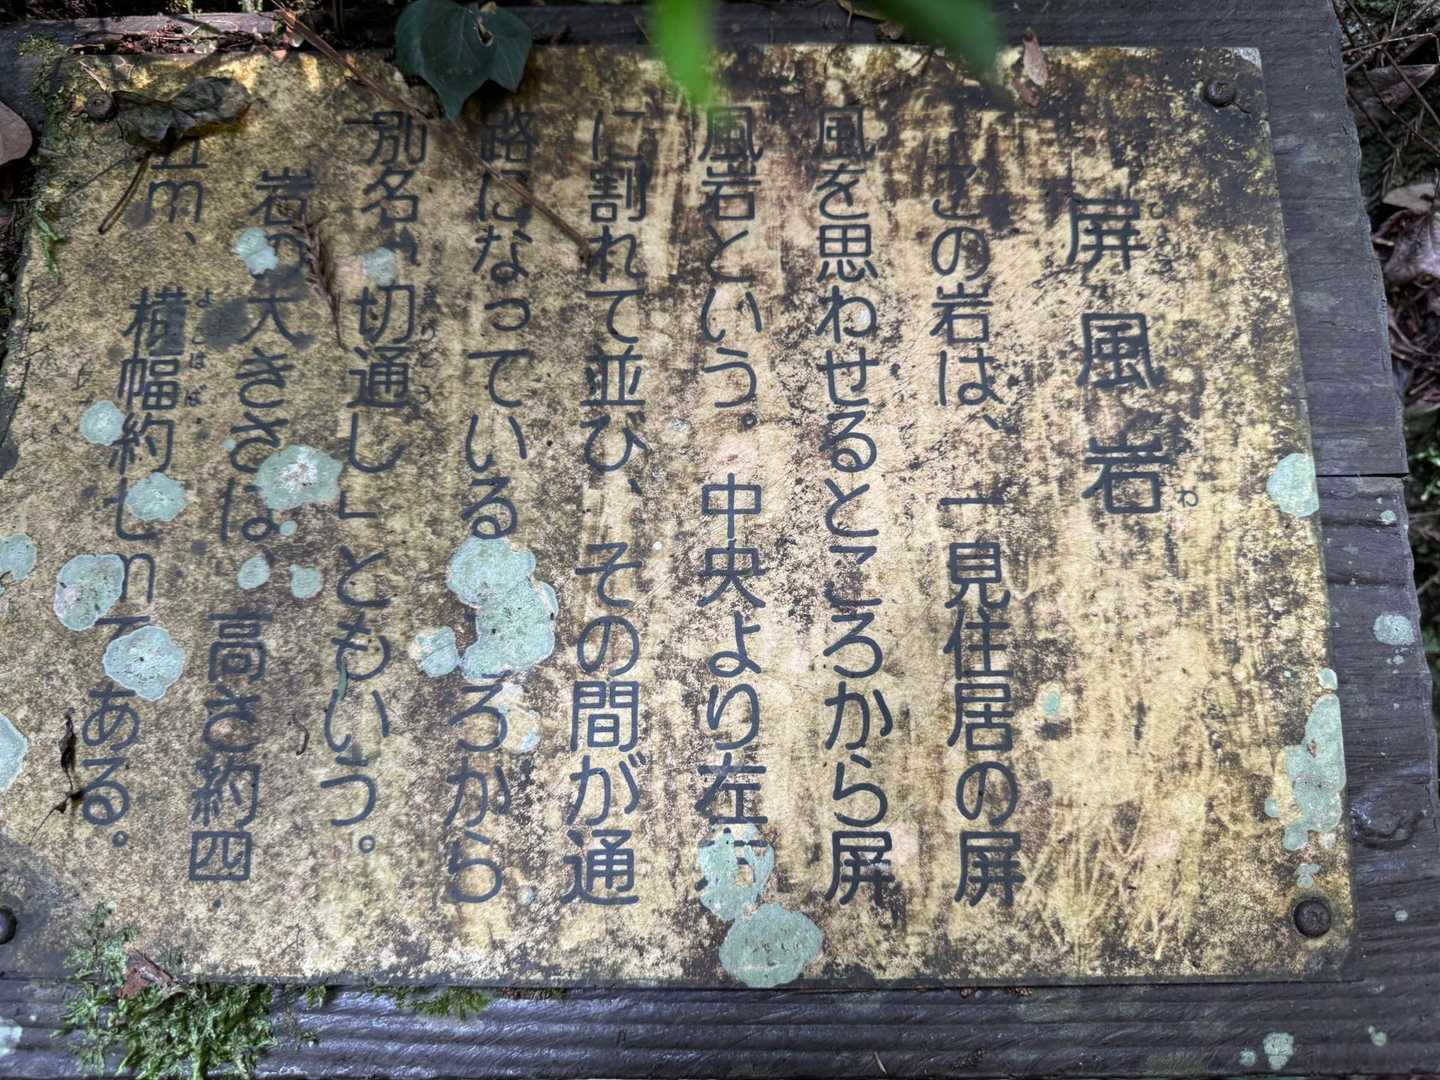 屏風岩
この岩は、一見住居の屏
風を思わせるところから屏
風岩という。中央より左右
に割れて並び、その間が通
路になっているところから
別名「切通し」ともいう。
岩の大きさは、高さ約四・
五m、横幅約七mである。